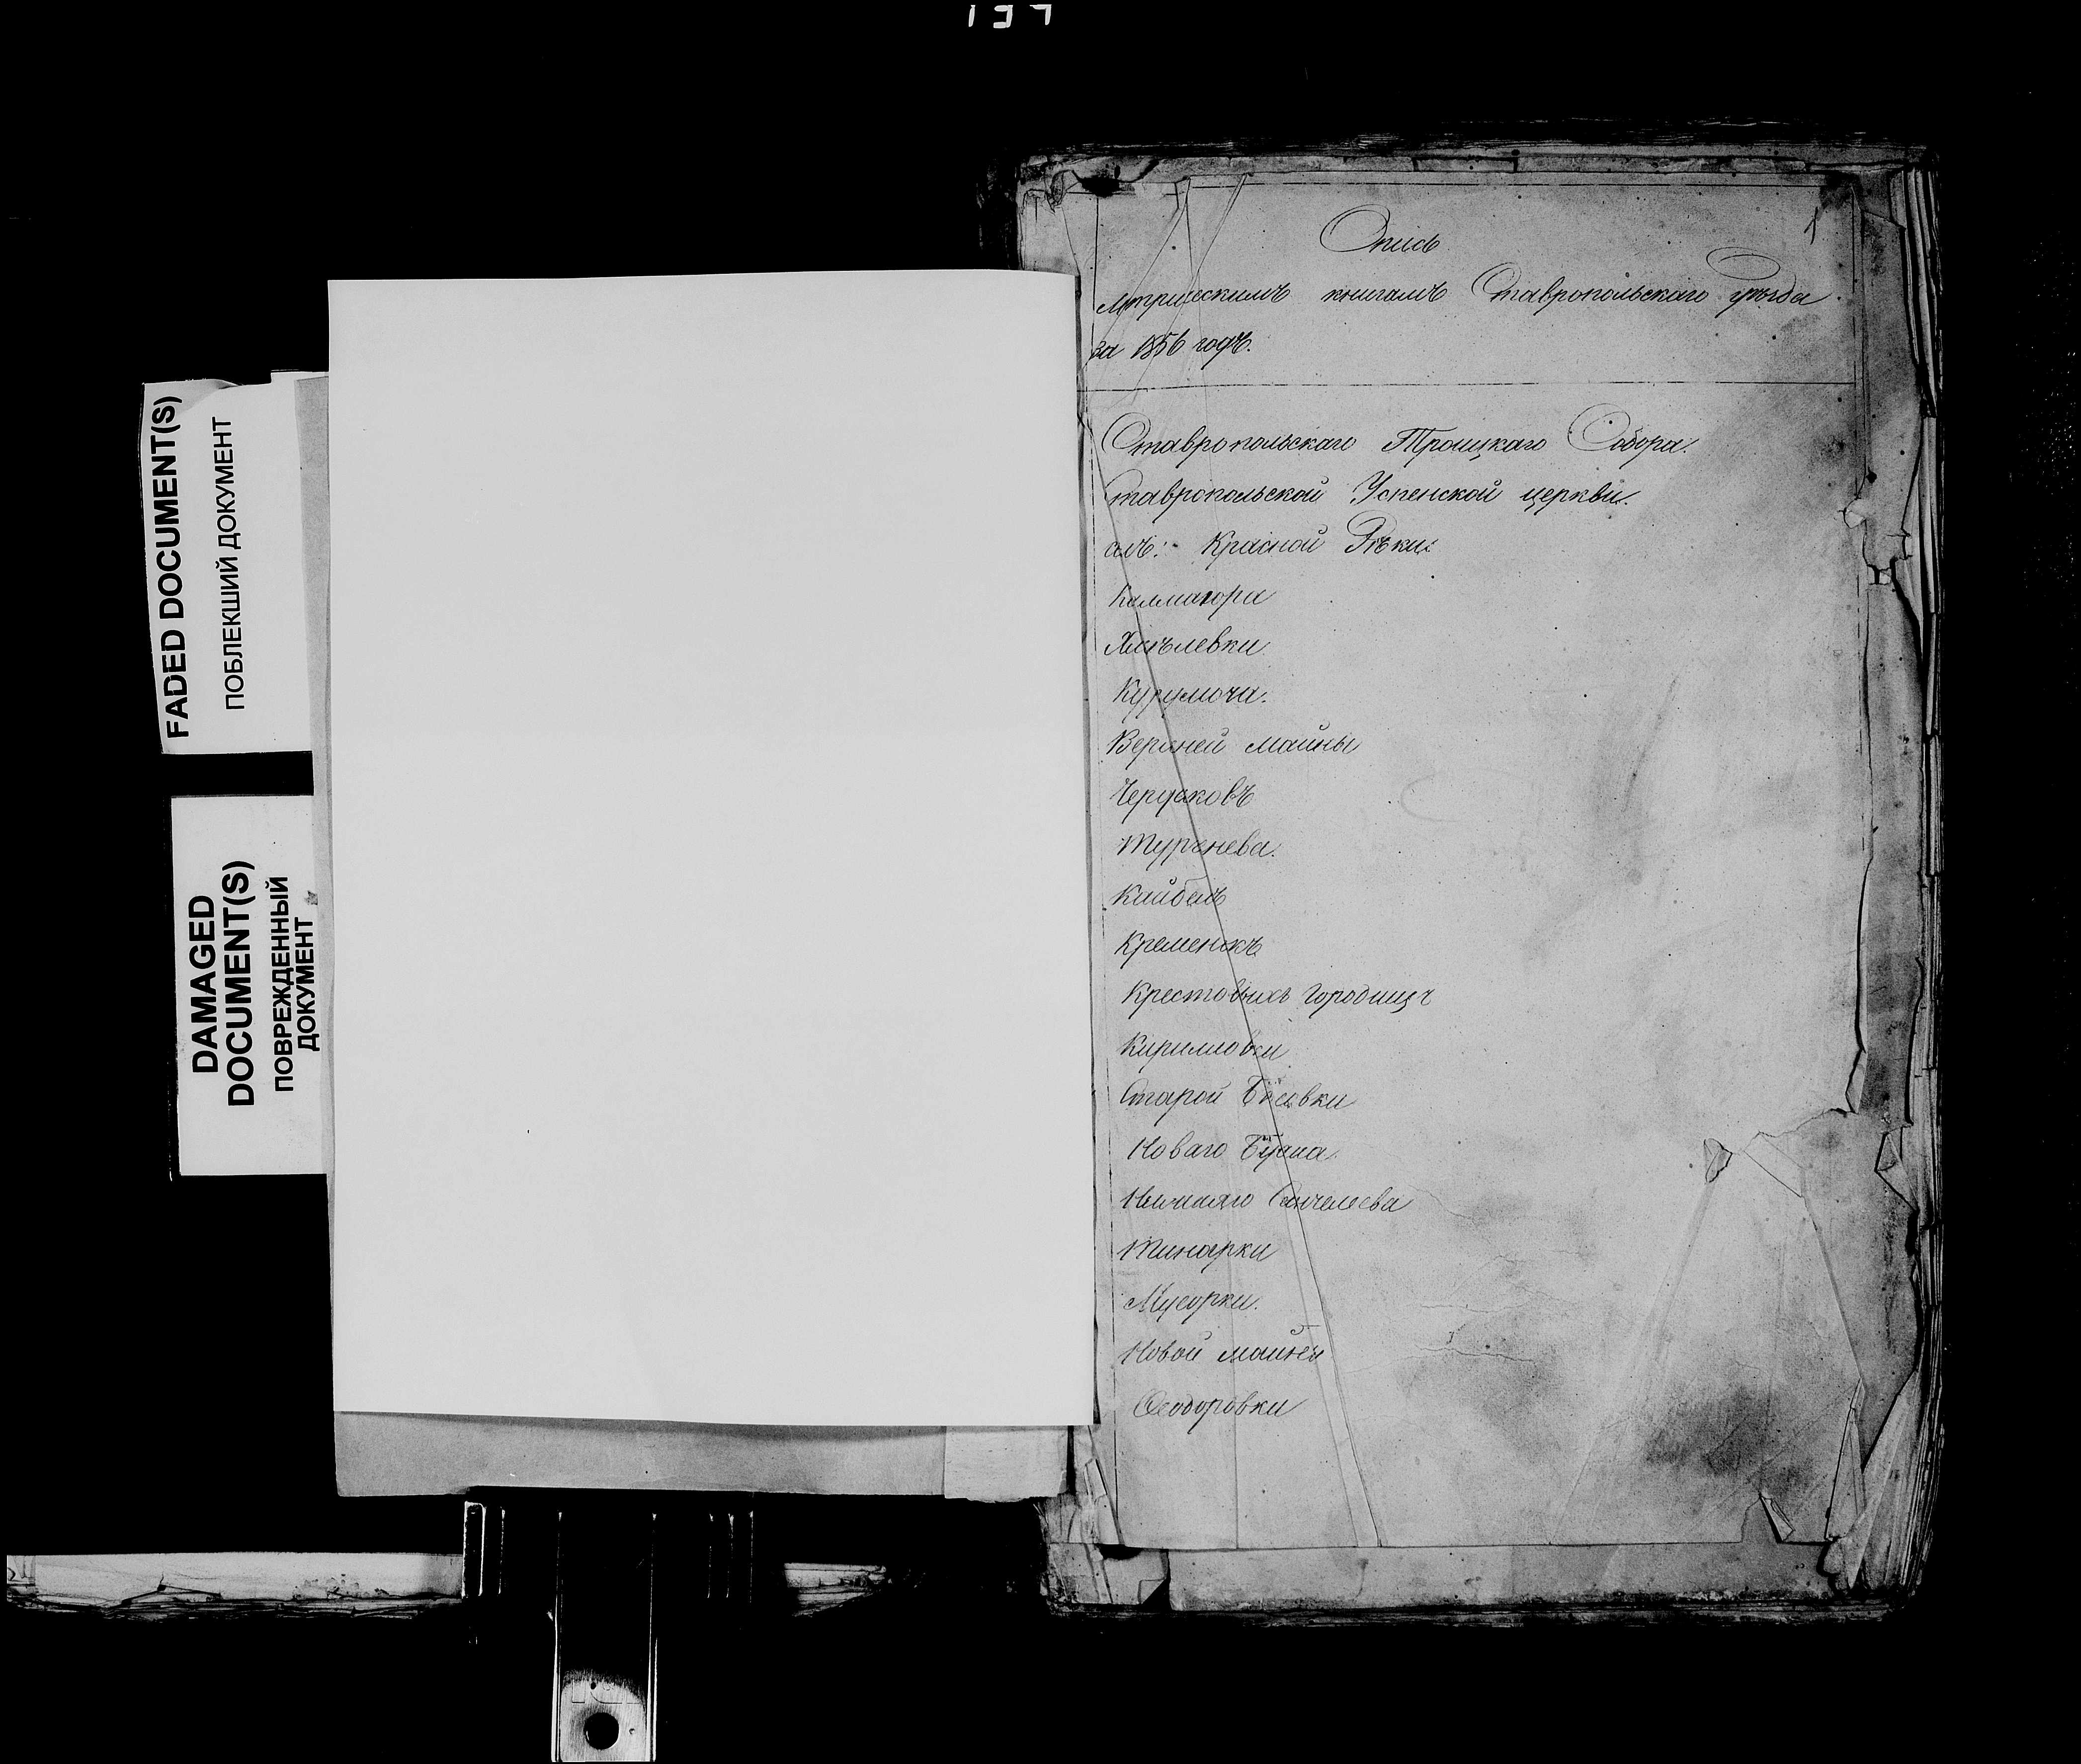 137
FADED DOCUMENT(S)
ПОБЛЕКШИЙ ДОКУМЕНТ
DAMAGED
DOCUMENT(S)
ПОВРЕЖДЕННЫЙ
ДОКУМЕНТ
1
Опись
метрическимъ книгамъ Ставропольскаго уѣзда
за 1856 годъ.
Ставропольскаго Троицкаго Собора.
Ставропольской Успенской церкви.
Красной Рѣки
Хмѣлевки
Курумоча.
Верхней майны
Тургенева.
Кайбелъ
Кременокъ
Крестовыхъ Городищъ
Кирилловки
Старой
Новаго Буяна
Нижняго Санчелеева
Тинарки
Мусорки.
Новой майны
Ѳеодоровки